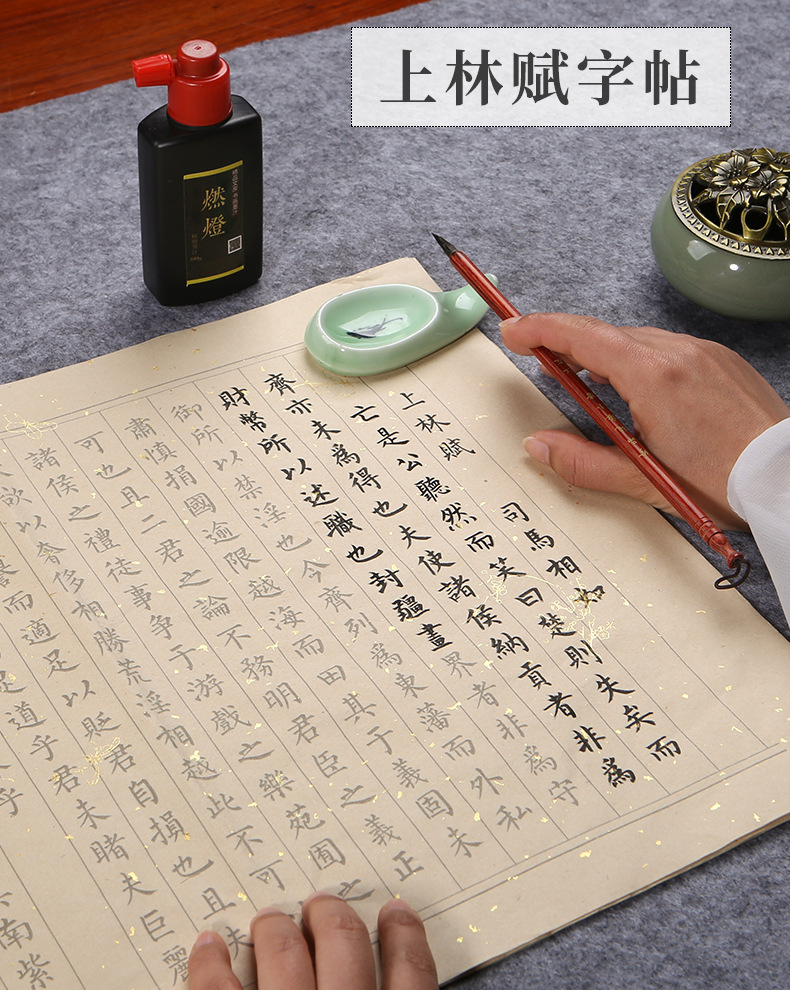 上林赋字帖
燃燈
上林賦 司馬相如
亡是公聽然而笑曰楚則失矣而
齊亦未為得也夫使諸侯納貢者非為
財幣所以述職也封疆畫界者非為守
御所以禁淫也今齊列為東藩而外私
肅慎捐國逾限越海而田其于義固未
可也且二君之論不務明君臣之義正
諸侯之禮徒事爭于游戲之樂苑囿之
欲以奢侈相勝荒淫相越此不可
譽而適足以貶君自損也且夫
道乎君未睹夫巨麗
乎
南紫